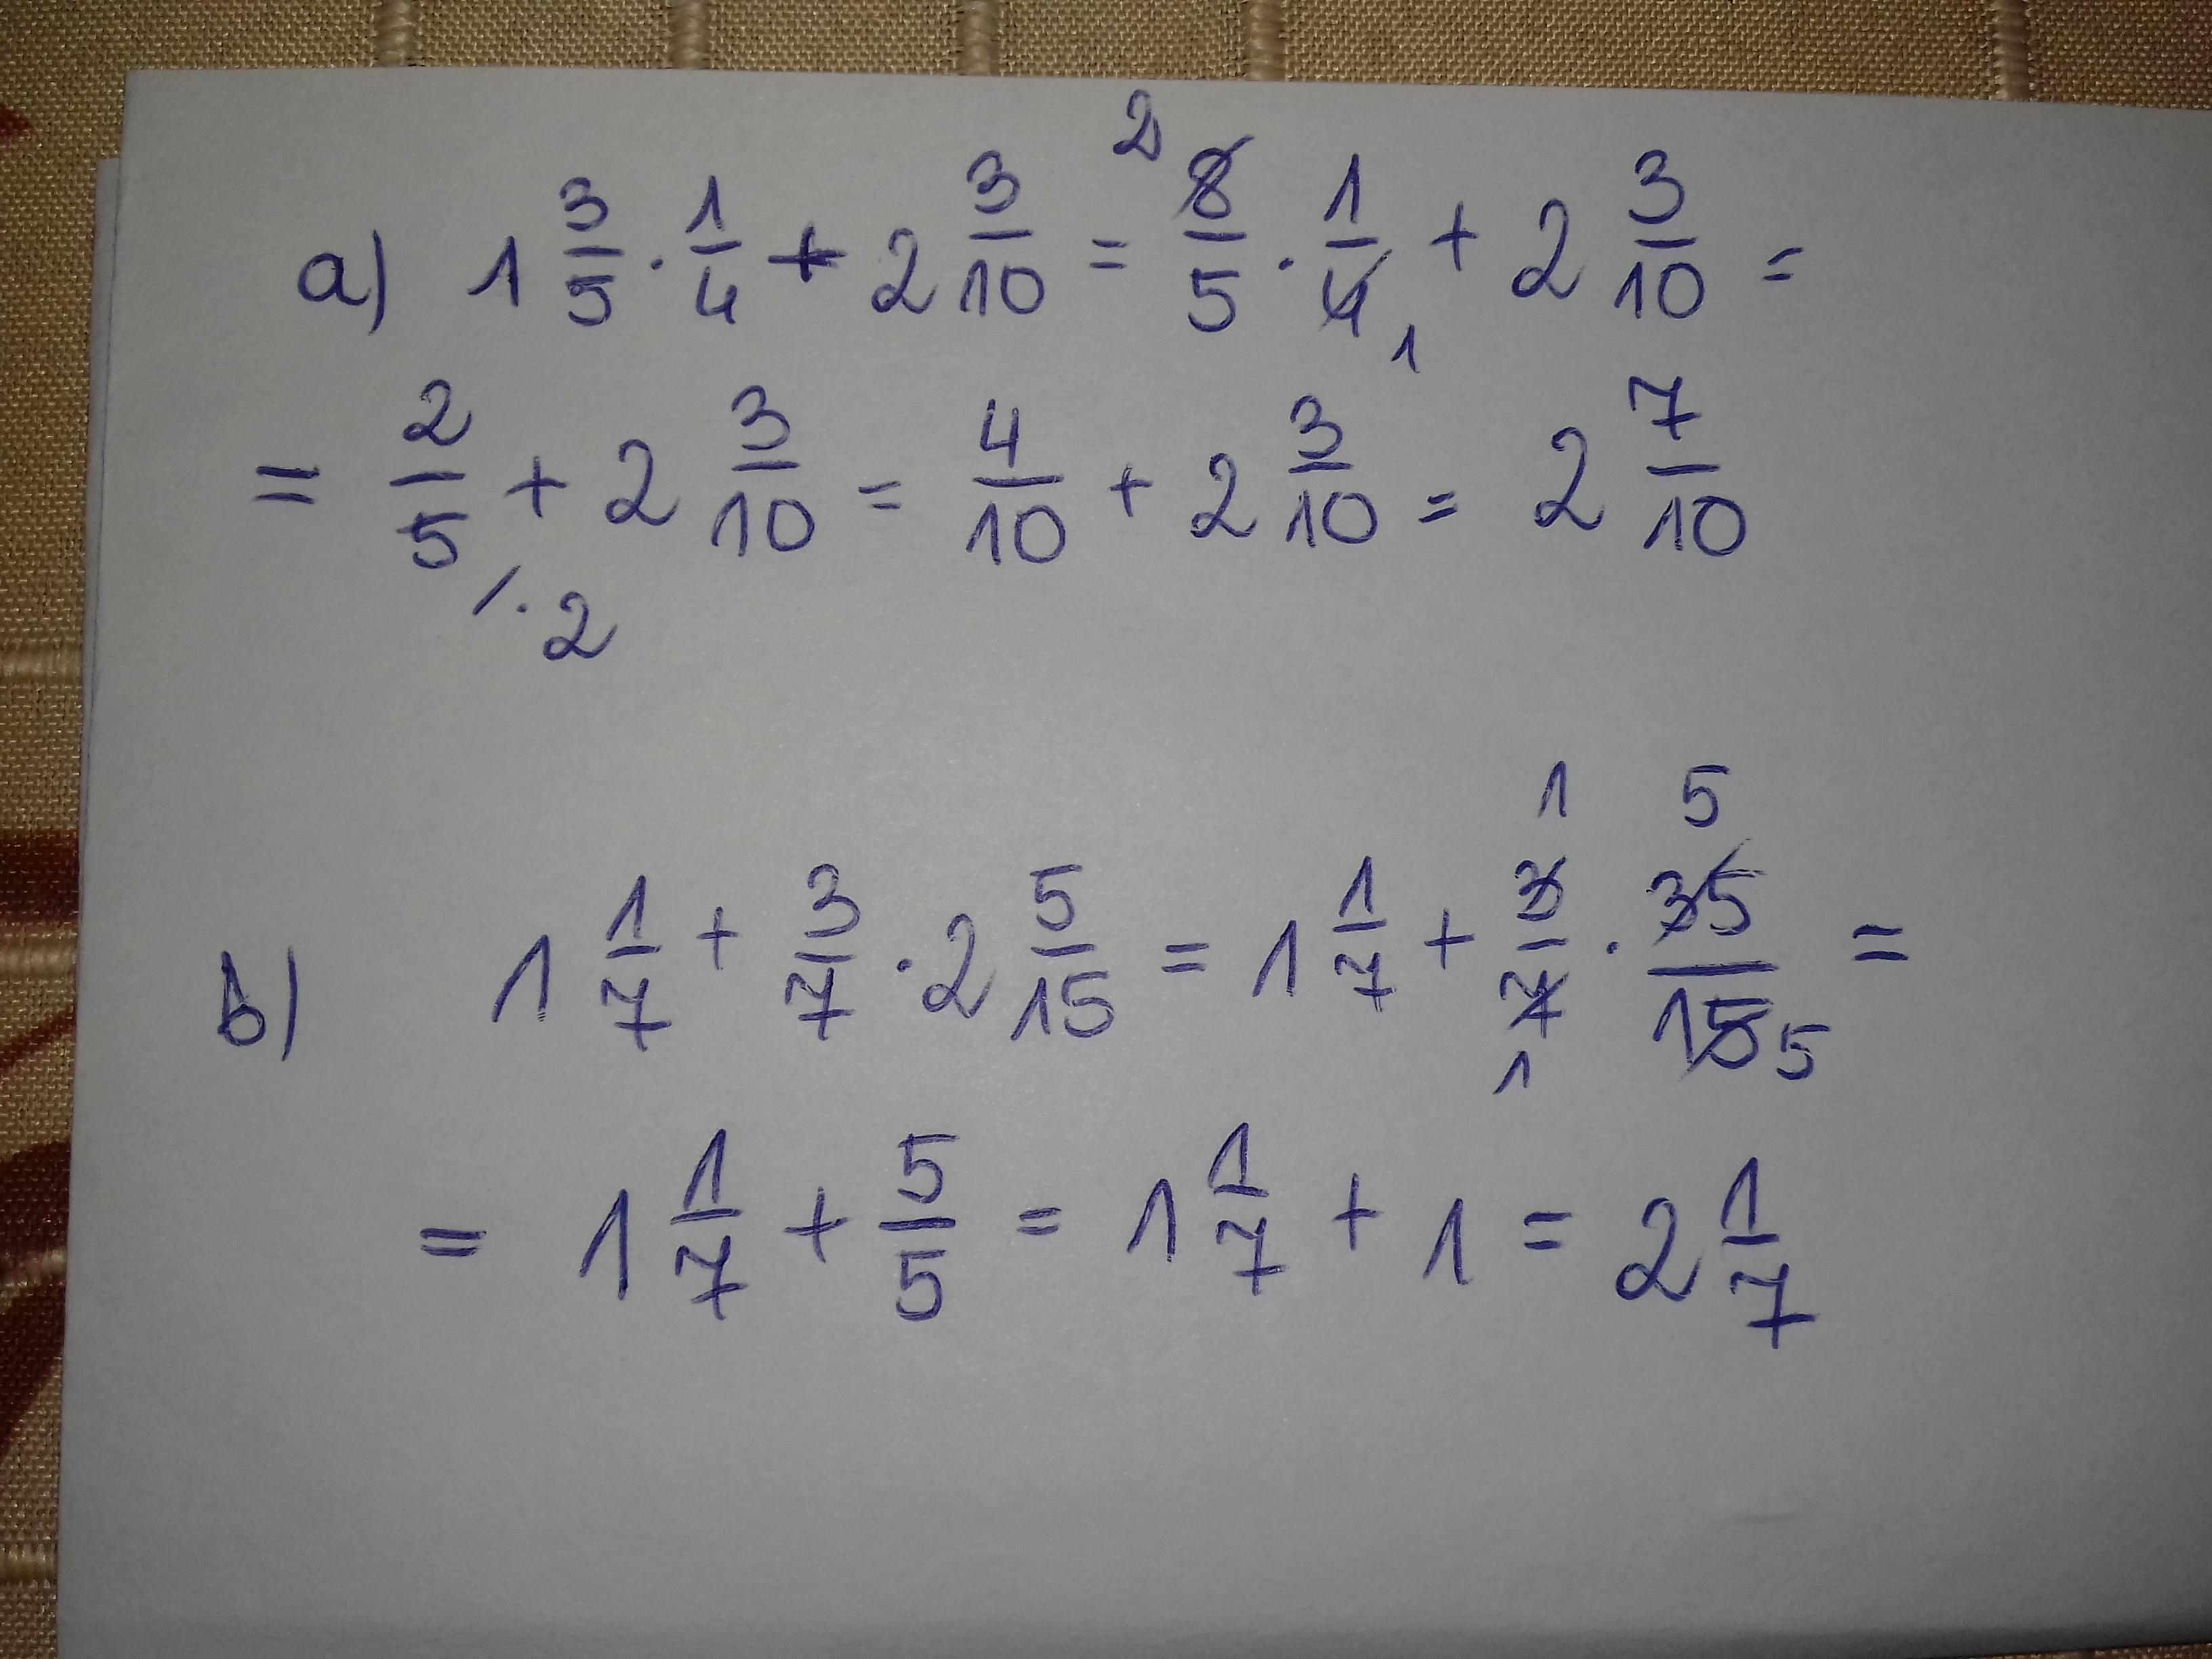 a) 1 3/5 · 1/4 + 2 3/10 = 2 8/5 · 1/4 1 + 2 3/10 =
= 2/5 /·2 + 2 3/10 = 4/10 + 2 3/10 = 2 7/10
b) 1 1/7 + 3/7 · 2 5/15 = 1 1/7 + 1 3/7 1 · 5 35/15 5 =
= 1 1/7 + 5/5 = 1 1/7 + 1 = 2 1/7